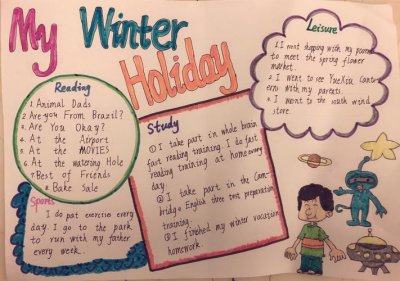 My Winter
Holiday
Reading
1. Animal Dads
2. Are you From Brazil?
3. Are You Okay?
4. At the Airport
5. At the MOVIES
6. At the watering Hole
7. Best of Friends
8. Bake Sale
Sports
I do pat exercise every
day. I go to the park
to run with my father
every week.
Study
① I take part in whole brain
fast reading training. I do fast
reading training at home every
day.
② I take part in the Cam-
bridge English three test preparation
training.
③ I finished my winter vacation
homework.
Leisure
1. I went shopping with my parents
to meet the spring flower
market.
2. I went to see YueXiu
with my parents.
3. I went to the south wind
store.